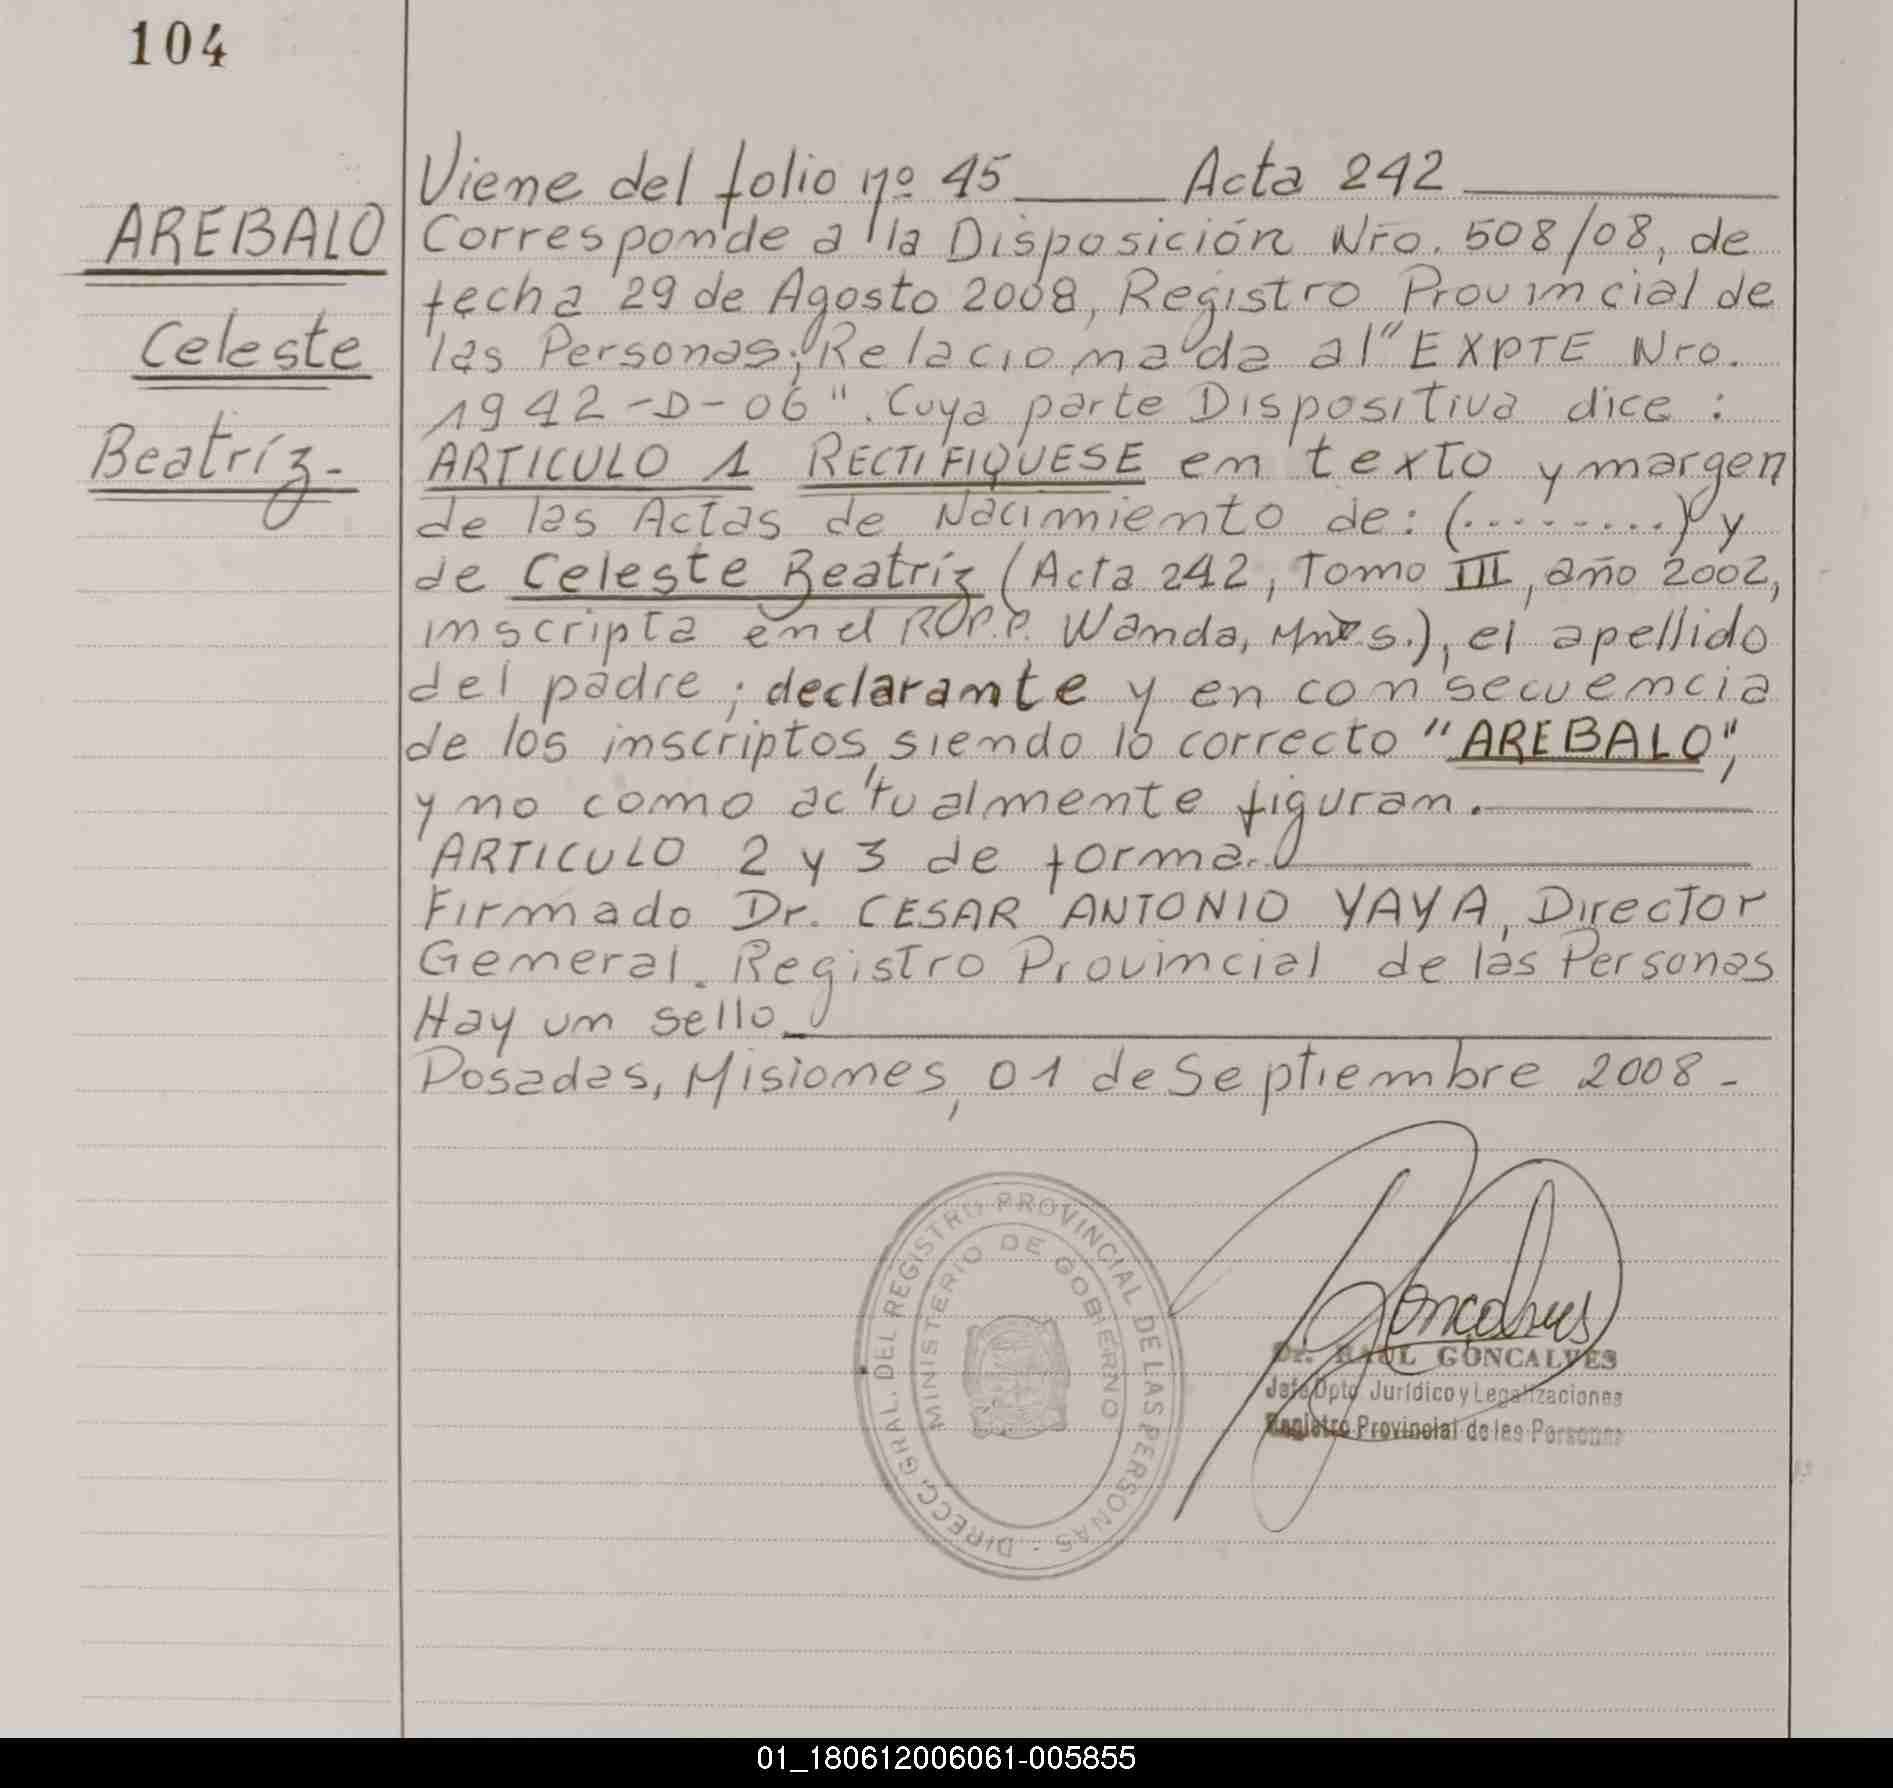 104
AREBALO
Celeste
Beatríz.-
Viene del folio nº 45 Acta 242
Corresponde a la Disposición Nro. 508/08, de
fecha 29 de Agosto 2008, Registro Provincial de
las Personas; Relacionada al "EXPTE Nro.
1942-D-06". Cuya parte Dispositiva dice:
ARTICULO 1 RECTIFIQUESE en texto y margen
de las Actas de Nacimiento de: (.........) y
de Celeste Beatríz (Acta 242, Tomo III, año 2002,
inscripta en el R.P.P. Wanda, Mnes.), el apellido
del padre; declarante y en consecuencia
de los inscriptos, siendo lo correcto "AREBALO",
y no como actualmente figuran.
ARTICULO 2 y 3 de forma.
Firmado Dr. CESAR ANTONIO YAYA, Director
General. Registro Provincial de las Personas
Hay un sello
Posadas, Misiones, 01 de Septiembre 2008-
DIRECC. GRAL. DEL REGISTRO PROVINCIAL DE LAS PERSONAS
MINISTERIO DE GOBIERNO
Goncalves
Dr. RAUL GONCALVES
Jefe Dpto Jurídico y Legalizaciones
Registro Provincial de las Personas
01_180612006061-005855